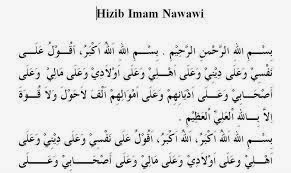 Hizib Imam Nawawi
بِسْمِ اللهِ الرَّحْمٰنِ الرَّحِيْمِ . بِسْمِ اللهِ اَللهُ اَكْبَرُ، اَقُوْلُ عَلَـــى
نَفْسِيْ وَعَلَى دِيْنِيْ وَعَلَى اَهْلِيْ وَعَلَى اَوْلَادِيْ وَعَلَى مَالِيْ وَعَلَى
اَصْحَـابِيْ وَعَلَــى اَدْيَانِهِمْ وَعَلَى اَمْوَالِهِمْ اَلْفَ لَاحَوْلَ وَلَا قُـوَّةَ
اِلاَّ بِـاللهِ الْعَلِيِّ الْعَظِيْمِ .
بِسْمِ اللهِ اَللهُ اَكْبَرُ، اَللهُ اَكْبَرُ، اَقُوْلُ عَلَى نَفْسِيْ وَعَلَى دِيْنِيْ وَعَلَى
اَهْلِـيْ وَعَلَى اَوْلَادِيْ وَعَلَى مَالِيْ وَعَلَى اَصْحَابِيْ وَعَلَـــى